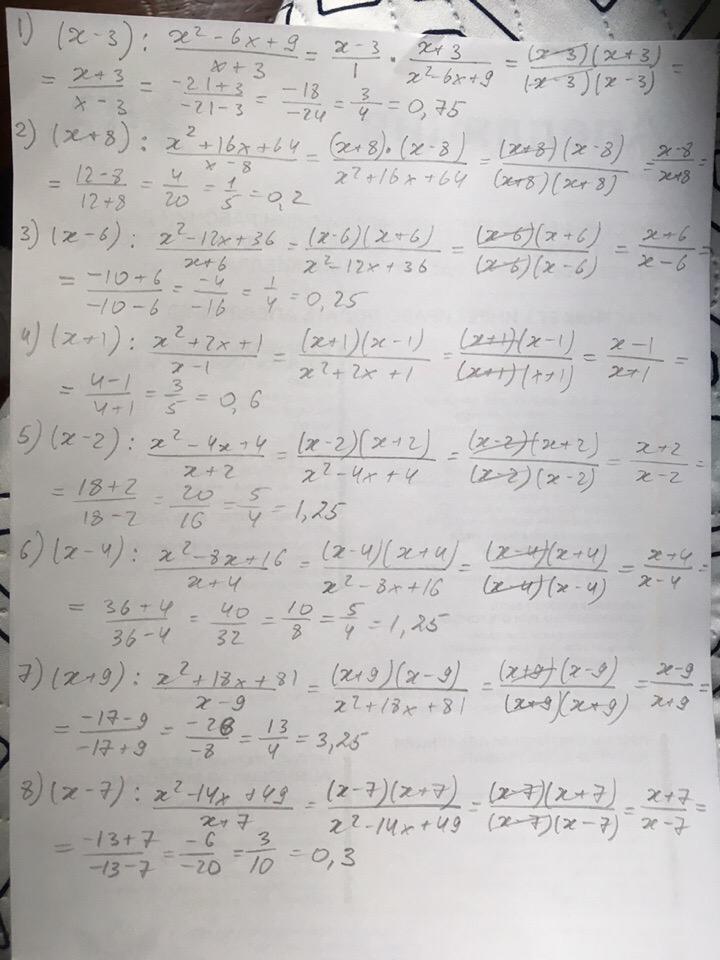 1) (x-3) : \frac{x^2-6x+9}{x+3} = \frac{x-3}{1} \cdot \frac{x+3}{x^2-6x+9} = \frac{(x-3)(x+3)}{(x-3)(x-3)} =
= \frac{x+3}{x-3} = \frac{-21+3}{-21-3} = \frac{-18}{-24} = \frac{3}{4} = 0,75
2) (x+8) : \frac{x^2+16x+64}{x-8} = \frac{(x+8) \cdot (x-8)}{x^2+16x+64} = \frac{(x+8)(x-8)}{(x+8)(x+8)} = \frac{x-8}{x+8} =
= \frac{12-8}{12+8} = \frac{4}{20} = \frac{1}{5} = 0,2
3) (x-6) : \frac{x^2-12x+36}{x+6} = \frac{(x-6)(x+6)}{x^2-12x+36} = \frac{(x-6)(x+6)}{(x-6)(x-6)} = \frac{x+6}{x-6} =
= \frac{-10+6}{-10-6} = \frac{-4}{-16} = \frac{1}{4} = 0,25
4) (x+1) : \frac{x^2+2x+1}{x-1} = \frac{(x+1)(x-1)}{x^2+2x+1} = \frac{(x+1)(x-1)}{(x+1)(x+1)} = \frac{x-1}{x+1} =
= \frac{4-1}{4+1} = \frac{3}{5} = 0,6
5) (x-2) : \frac{x^2-4x+4}{x+2} = \frac{(x-2)(x+2)}{x^2-4x+4} = \frac{(x-2)(x+2)}{(x-2)(x-2)} = \frac{x+2}{x-2} =
= \frac{18+2}{18-2} = \frac{20}{16} = \frac{5}{4} = 1,25
6) (x-4) : \frac{x^2-8x+16}{x+4} = \frac{(x-4)(x+4)}{x^2-8x+16} = \frac{(x-4)(x+4)}{(x-4)(x-4)} = \frac{x+4}{x-4} =
= \frac{36+4}{36-4} = \frac{40}{32} = \frac{10}{8} = \frac{5}{4} = 1,25
7) (x+9) : \frac{x^2+18x+81}{x-9} = \frac{(x+9)(x-9)}{x^2+18x+81} = \frac{(x+9)(x-9)}{(x+9)(x+9)} = \frac{x-9}{x+9} =
= \frac{-17-9}{-17+9} = \frac{-26}{-8} = \frac{13}{4} = 3,25
8) (x-7) : \frac{x^2-14x+49}{x+7} = \frac{(x-7)(x+7)}{x^2-14x+49} = \frac{(x-7)(x+7)}{(x-7)(x-7)} = \frac{x+7}{x-7} =
= \frac{-13+7}{-13-7} = \frac{-6}{-20} = \frac{3}{10} = 0,3